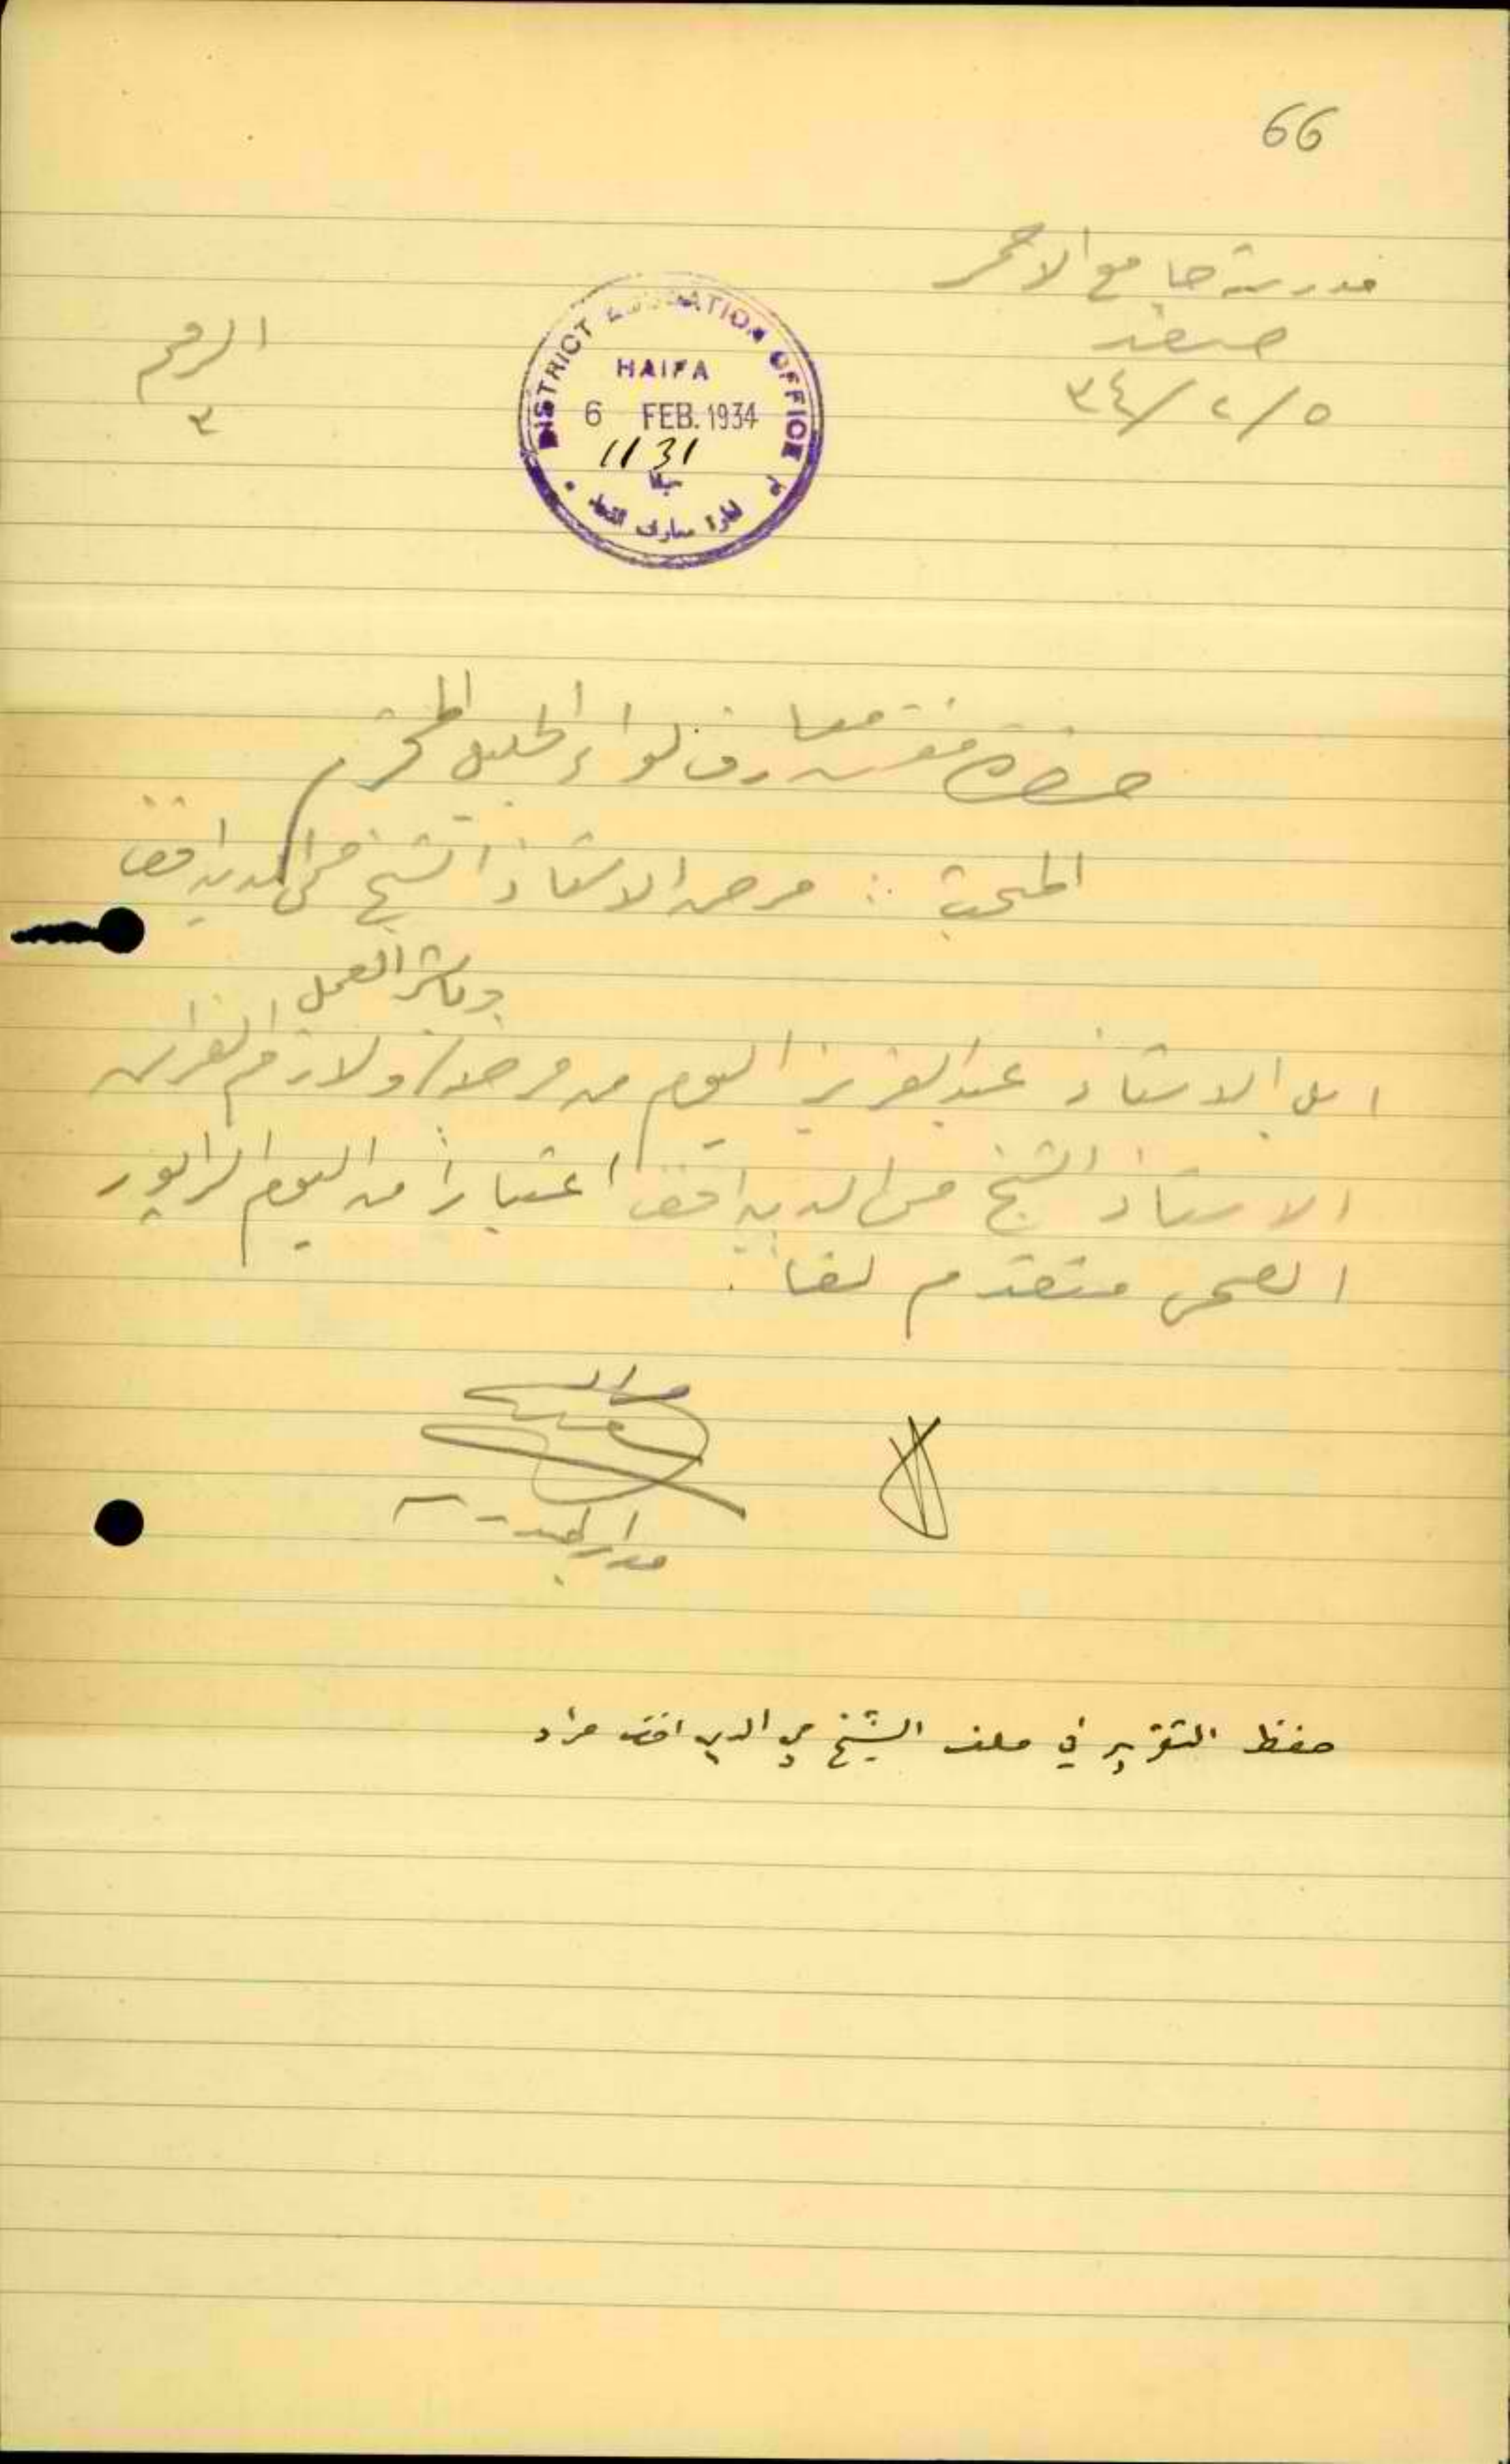 66
مدرسة جامع الاحمر
صفد
٥/٢/٣٤
الرقم
٣
DISTRICT EDUCATION OFFICE
HAIFA
6 FEB. 1934
1131
حضرة مفتش معارف لواء الجليل المحترم
المبحث : مرض الاستاذ الشيخ محي الدين افندي
وباشر العمل
ابل الاستاذ عبد العزيز اليوم من مرضه / ولازم الفراش
الاستاذ الشيخ محي الدين افندي اعتباراً من اليوم الرابور
الصحي متقدم لفاً .
مدير المدرسة
حفظ التقرير في ملف الشيخ محي الدين افندي مراد